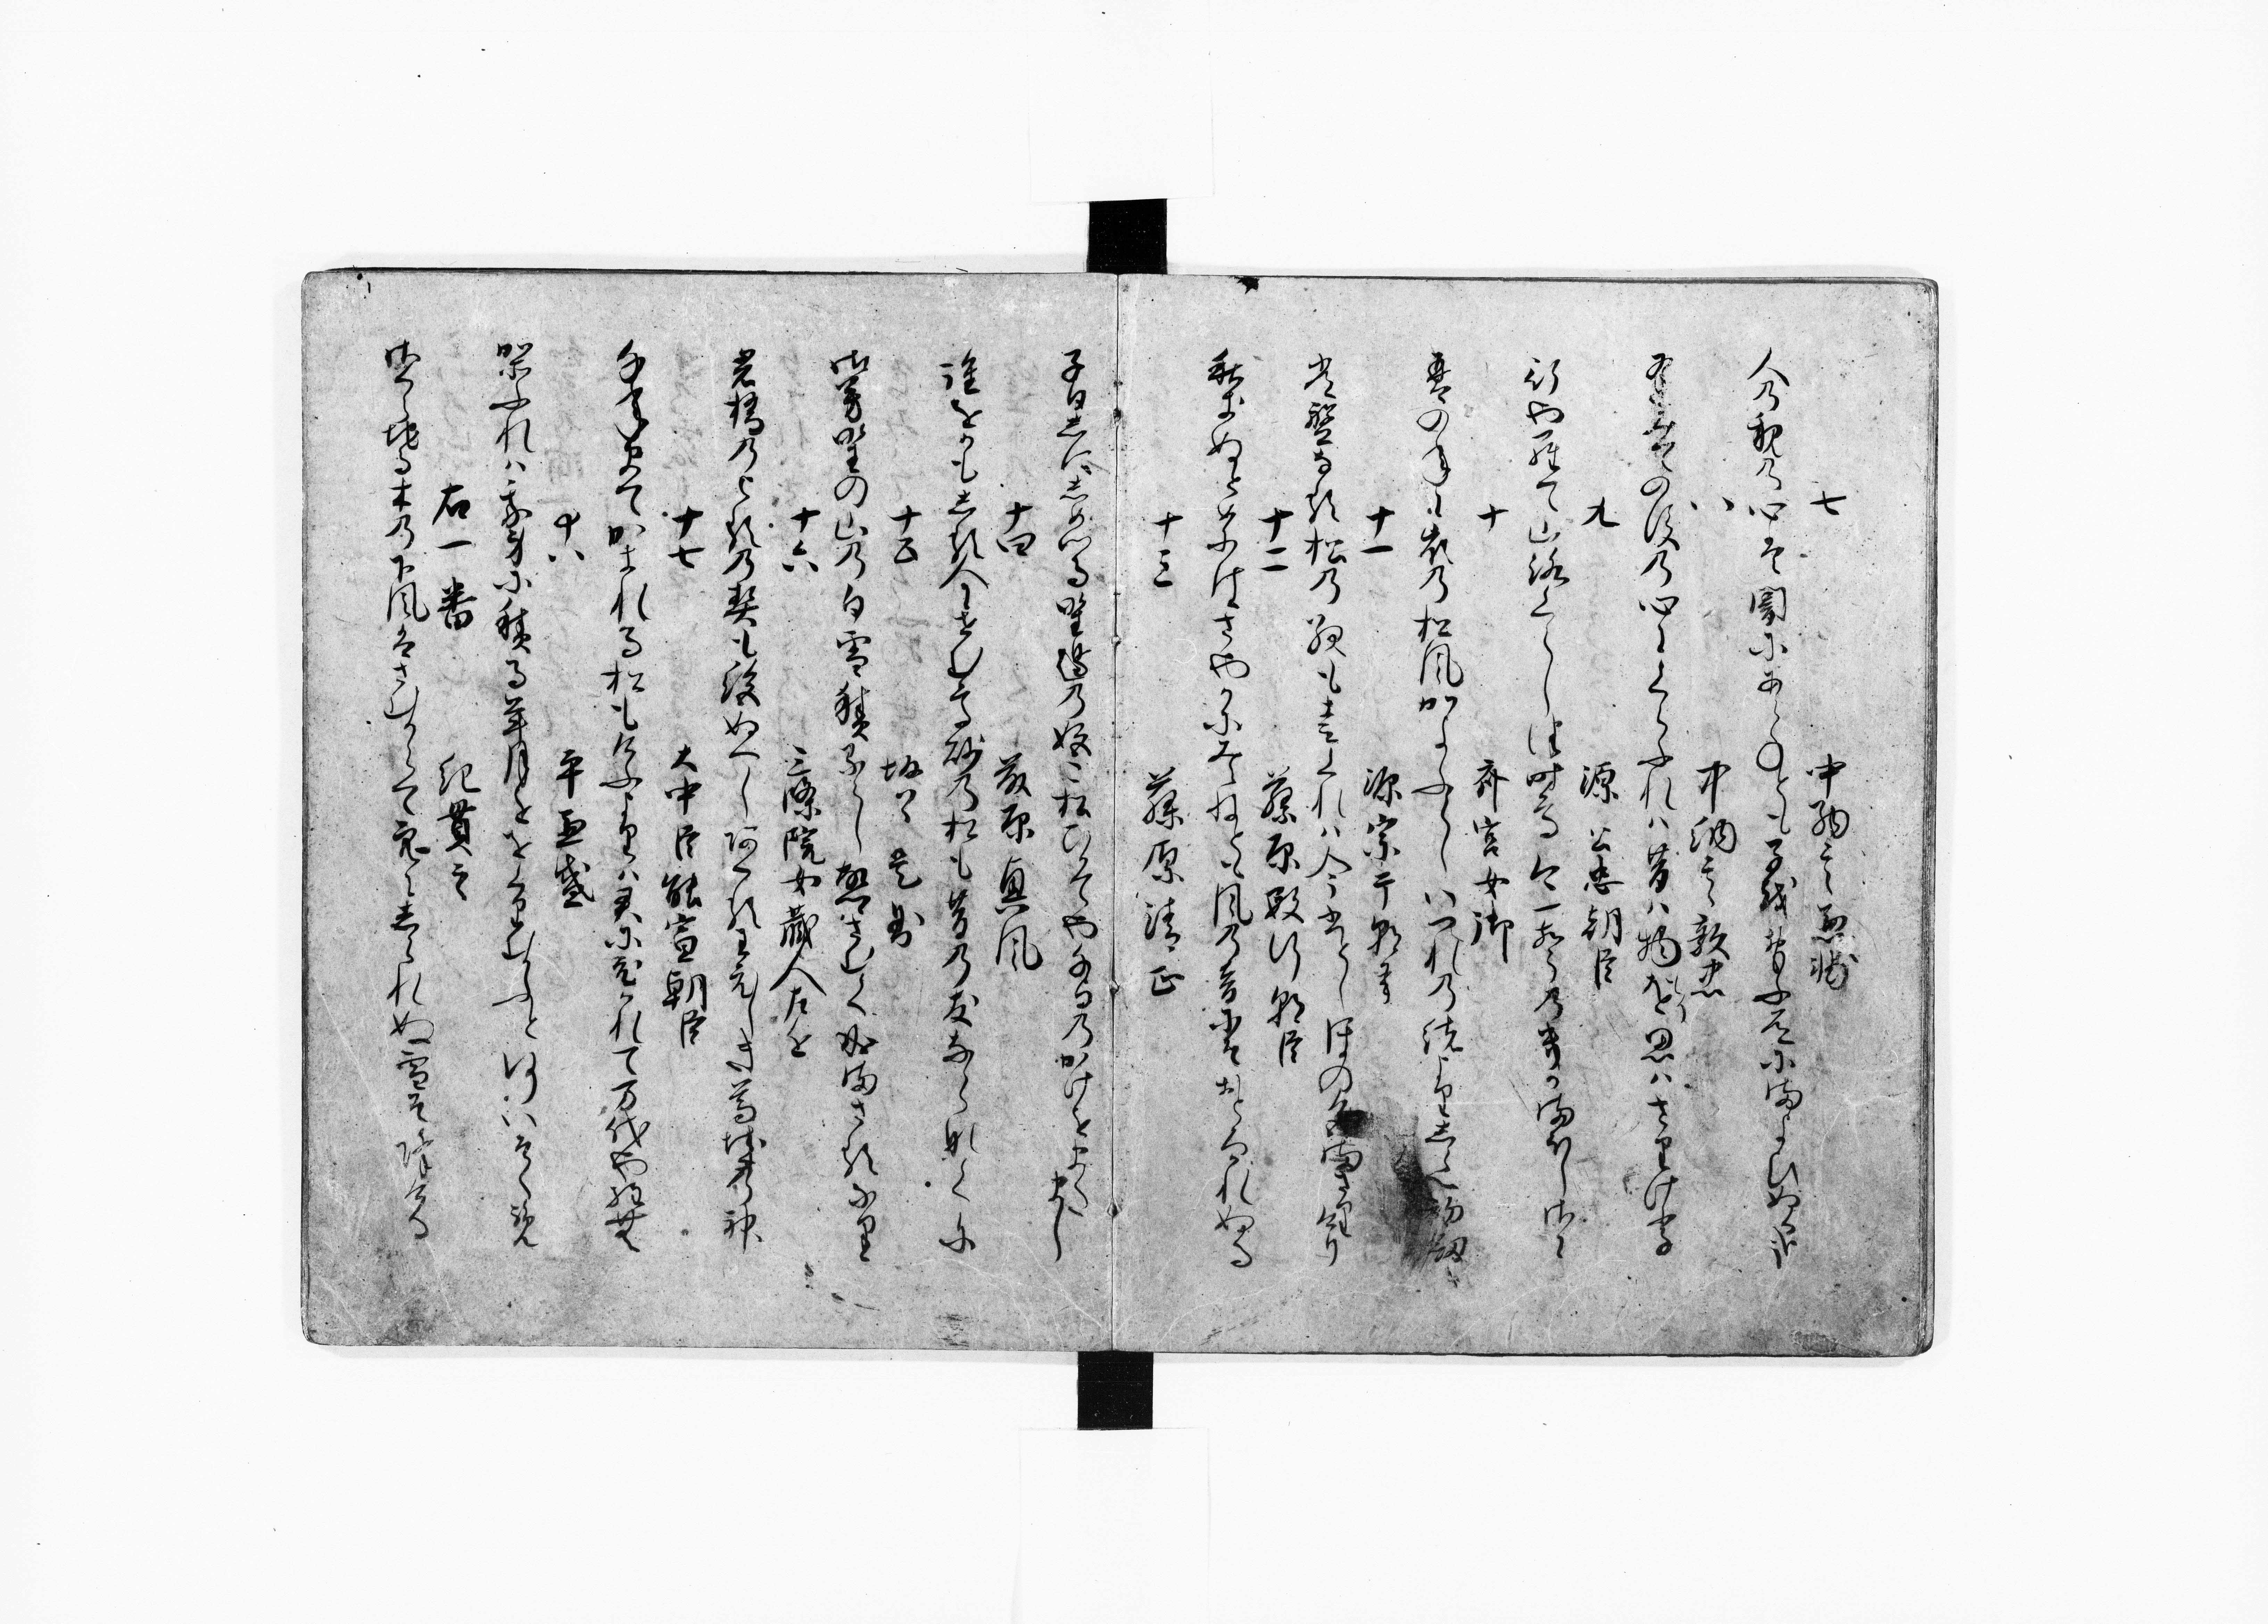 七　中納言兼輔
人乃親乃心は闇にあらねとも子を思ふ道にまよひぬる哉
八　中納言敦忠
あひみての後乃心にくらふれは昔は物を思はさりけり
九　源公忠朝臣
行やらて山路くらしつ時鳥今一こゑのきかまほしさに
十　斎宮女御
琴のねに峯乃松風かよふらしいつれのをよりしらへ初劔
十一　源宗于朝臣
常盤なる松乃緑も春くれは今一しほの色まさりけり
十二　藤原敏行朝臣
秋きぬとめにはさやかにみえねとも風乃音にそおとろかれぬる
十三　藤原清正
子日しにしめつる野辺乃姫こ松ひかてや千世乃かけをまたまし
十四　藤原興風
誰をかもしる人にせむ高砂乃松も昔乃友ならなくに
十五　坂上是則
み芳野の山乃白雪積るらし古郷さむく成まさるなり
十六　三條院女蔵人左近
岩橋乃よる乃契も絶ぬへし明るわひしき葛城乃神
十七　大中臣能宣朝臣
千年まてかきれる松もけふよりは君にひかれて万代やへむ
十八　平兼盛
かそふれは我身に積る年月を送りむかふと何いそくらん
右一番　紀貫之
さくら散木乃下風はさむからて空にしられぬ雪そ降ける